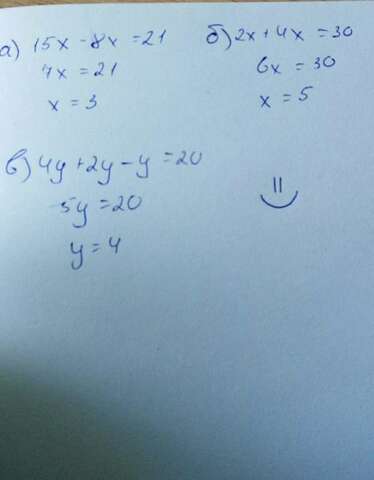 а) 15x - 8x = 21
7x = 21
x = 3
б) 2x + 4x = 30
6x = 30
x = 5
в) 4y + 2y - y = 20
5y = 20
y = 4